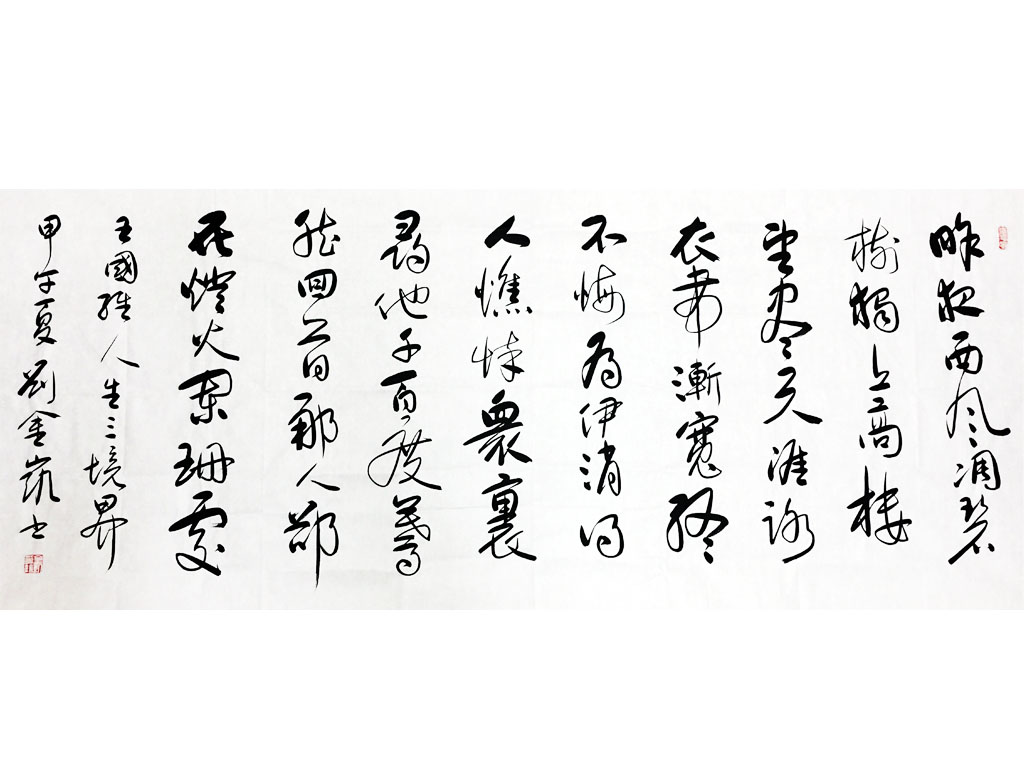 昨夜西风凋碧
樹獨上高樓
望盡天涯路
衣帶漸寬終
不悔為伊消得
人憔悴衆裏
尋他千百度驀
然回首那人卻
在燈火闌珊處
王國維人生三境界
甲午夏劉金书